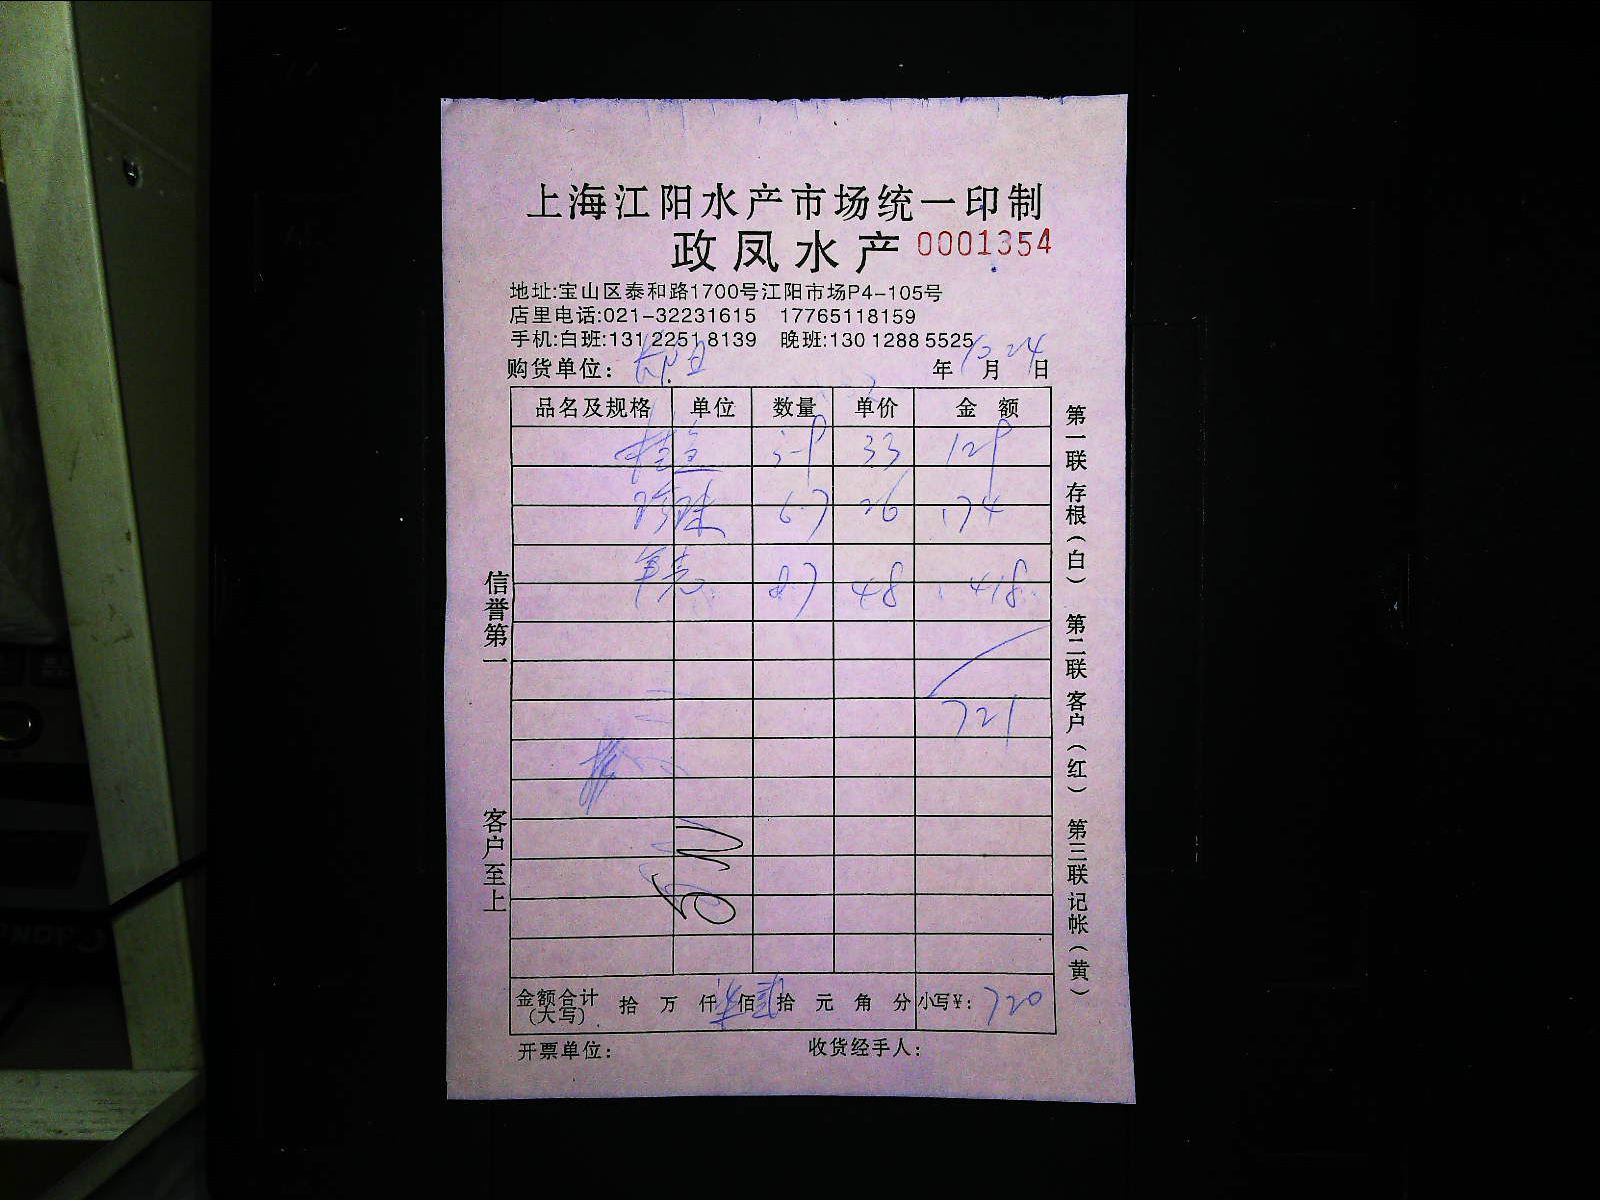 上海江阳水产市场统一印制
政凤水产 0001354
地址:宝山区泰和路1700号江阳市场P4-105号
店里电话:021-32231615 17765118159
手机:白班:131 2251 8139 晚班:130 1288 5525
购货单位: 年 10 月 24 日
品名及规格 单位 数量 单价 金额
桂鱼 3.9 33 129
珍珠 6.7 26 174
8.7 48 418
721
金额合计(大写) 拾 万 仟 柒 佰 贰 拾 元 角 分 小写¥: 720
开票单位: 收货经手人:
信誉第一 客户至上
第一联 存根(白) 第二联 客户(红) 第三联 记帐(黄)